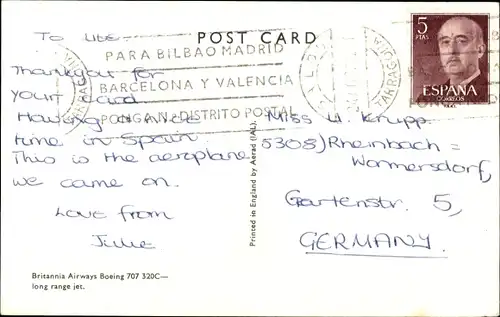 POST CARD
To Ulle-
Thankyou for
your card
Having a nice
time in Spain.
This is the aeroplane
we came on.
Love from
Julie
Britannia Airways Boeing 707 320C—
long range jet.
Printed in England by Aerad (IAL).
PARA BILBAO MADRID
BARCELONA Y VALENCIA
PONGA N.º DISTRITO POSTAL
TARRAGONA
5
PTAS
ESPAÑA
CORREOS
Miss U. Krupp.
5308) Rheinbach =
Wormersdorf,
Gartenstr. 5,
GERMANY.